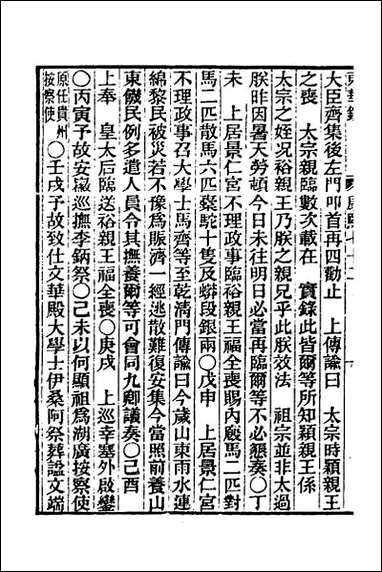 大臣齊集後左門叩首再四勸止　上傳諭曰　太宗時穎親王
之喪　太宗親臨數次載在　實錄此皆爾等所知穎親王係
太宗之姪況裕親王乃朕之親兄乎此朕效法　祖宗並非太過
朕昨因暑天勞頓今日未往明日必當再臨爾等不必懇奏〇丁
未　上居景仁宮不理政事臨裕親王福全喪賜內廏馬二匹對
馬二匹散馬六匹槖駝十隻及蟒段銀兩〇戊申　上居景仁宮
不理政事召大學士馬齊等至乾清門傳諭曰今歲山東雨水連
綿黎民被災若不豫為賑濟一經逃散難復安集今當照前養山
東饑民例多遣人員令其撫養爾等可會同九卿議奏〇己酉
上奉　皇太后臨送裕親王福全喪〇庚戌　上巡幸塞外啟鑾
〇丙寅予故安徽巡撫李鈵祭〇己未以何顯祖為湖廣按察使
原任貴州按察使〇壬戌予故致仕文華殿大學士伊桑阿祭葬諡文端